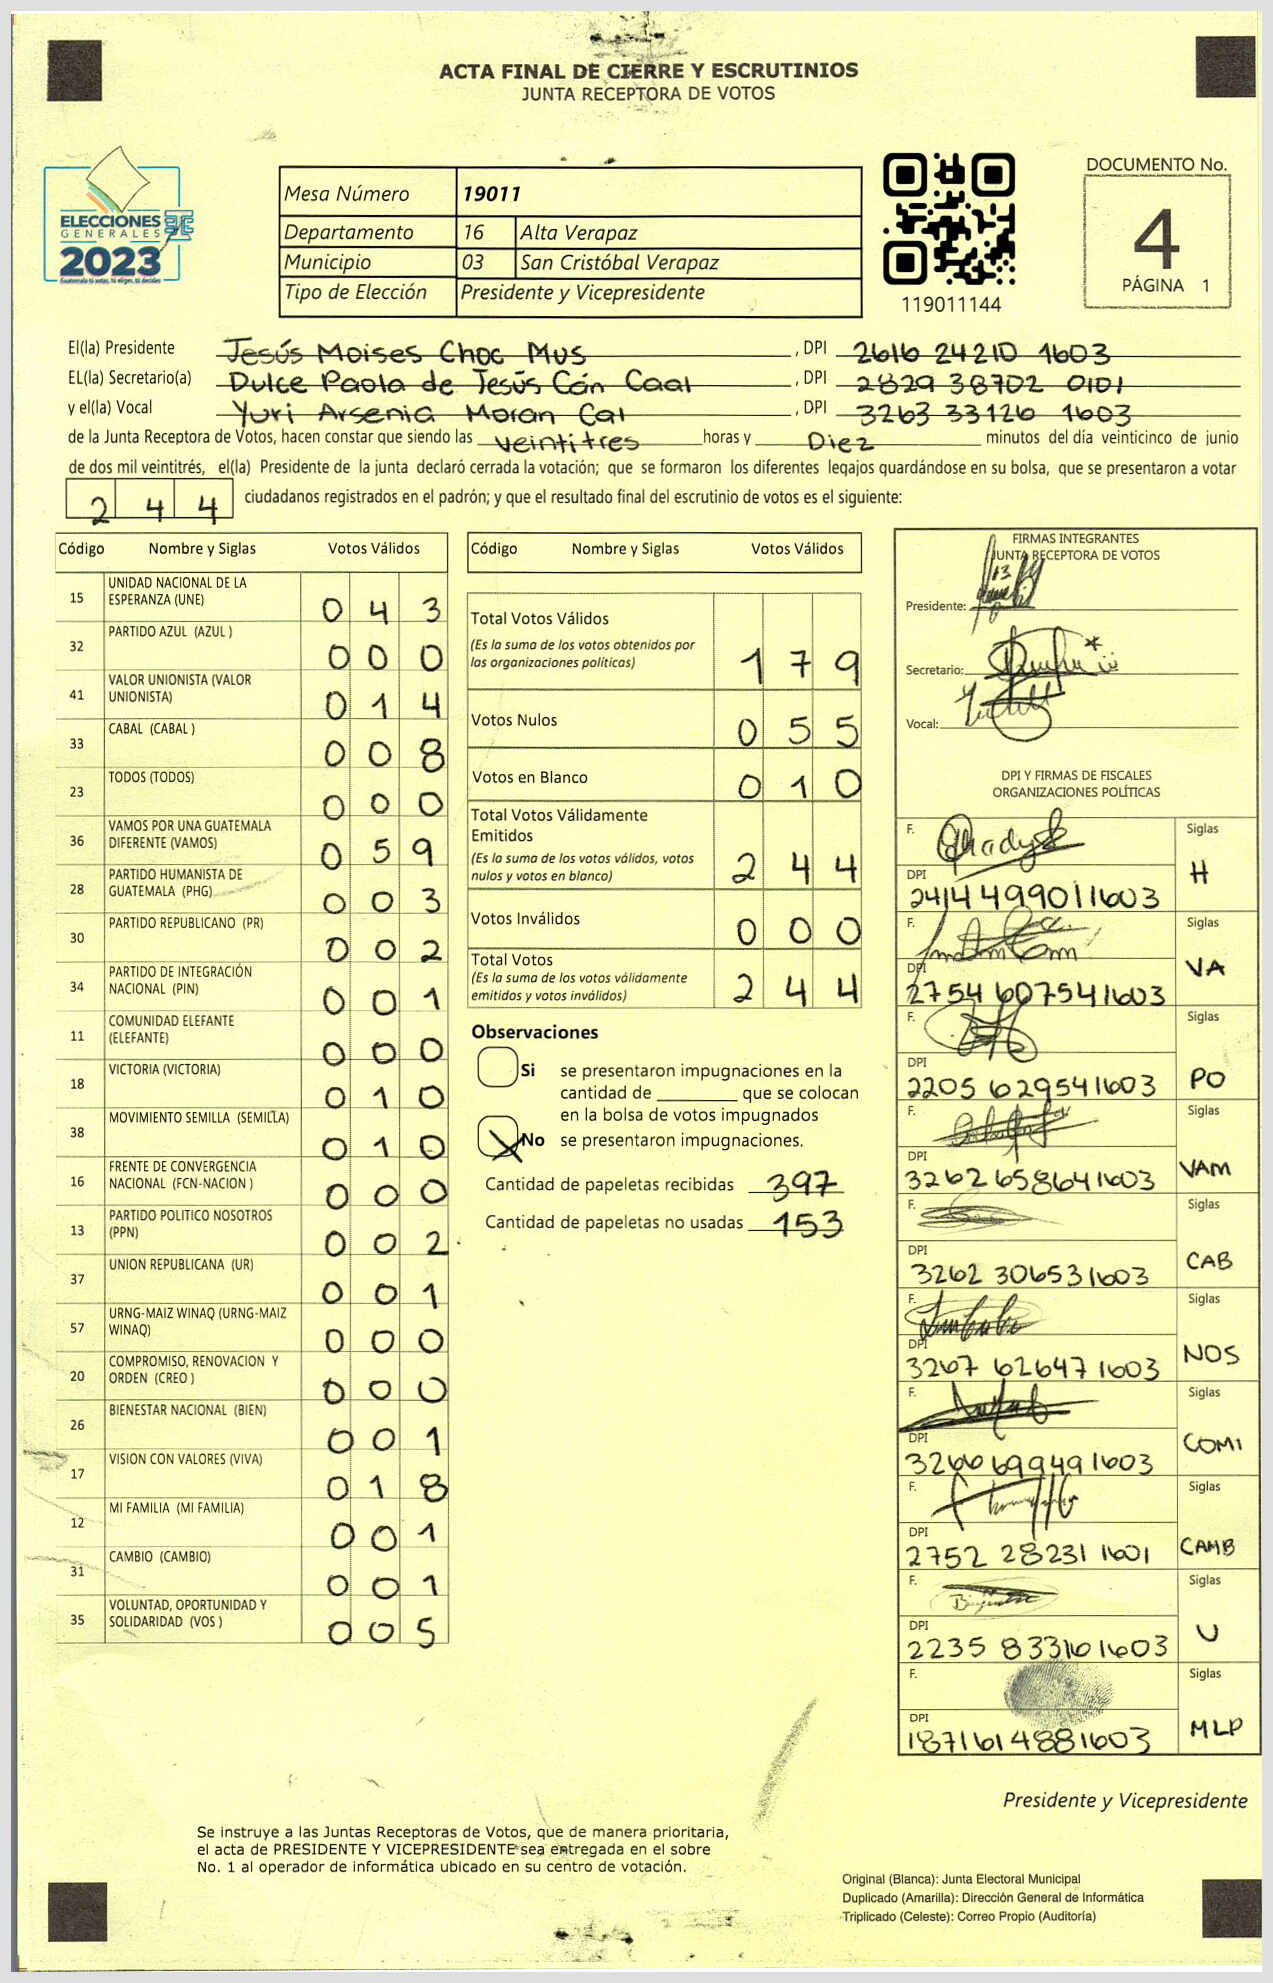 ACTA FINAL DE CIERRE Y ESCRUTINIOS
JUNTA RECEPTORA DE VOTOS
ELECCIONES
GENERALES
2023
Mesa Número 19011
Departamento 16 Alta Verapaz
Municipio 03 San Cristóbal Verapaz
Tipo de Elección Presidente y Vicepresidente
119011144
DOCUMENTO No.
4
PÁGINA 1
El(la) Presidente Jesús Moises Choc Mus , DPI 2616 24210 1603
EL(la) Secretario(a) Dulce Paola de Jesús Cán Caal , DPI 2829 38702 0101
y el(la) Vocal Yuri Arsenia Moran Cal , DPI 3263 33126 1603
de la Junta Receptora de Votos, hacen constar que siendo las veintitres horas y Diez minutos del día veinticinco de junio
de dos mil veintitrés, el(la) Presidente de la junta declaró cerrada la votación; que se formaron los diferentes legajos quardándose en su bolsa, que se presentaron a votar
244 ciudadanos registrados en el padrón; y que el resultado final del escrutinio de votos es el siguiente:
Código Nombre y Siglas Votos Válidos
15 UNIDAD NACIONAL DE LA ESPERANZA (UNE) 043
32 PARTIDO AZUL (AZUL ) 000
41 VALOR UNIONISTA (VALOR UNIONISTA) 014
33 CABAL (CABAL ) 008
23 TODOS (TODOS) 000
36 VAMOS POR UNA GUATEMALA DIFERENTE (VAMOS) 059
28 PARTIDO HUMANISTA DE GUATEMALA (PHG) 003
30 PARTIDO REPUBLICANO (PR) 002
34 PARTIDO DE INTEGRACIÓN NACIONAL (PIN) 001
11 COMUNIDAD ELEFANTE (ELEFANTE) 000
18 VICTORIA (VICTORIA) 010
38 MOVIMIENTO SEMILLA (SEMILLA) 010
16 FRENTE DE CONVERGENCIA NACIONAL (FCN-NACION ) 000
13 PARTIDO POLITICO NOSOTROS (PPN) 002
37 UNION REPUBLICANA (UR) 001
57 URNG-MAIZ WINAQ (URNG-MAIZ WINAQ) 000
20 COMPROMISO, RENOVACION Y ORDEN (CREO ) 000
26 BIENESTAR NACIONAL (BIEN) 001
17 VISION CON VALORES (VIVA) 018
12 MI FAMILIA (MI FAMILIA) 001
31 CAMBIO (CAMBIO) 001
35 VOLUNTAD, OPORTUNIDAD Y SOLIDARIDAD (VOS ) 005
Código Nombre y Siglas Votos Válidos
Total Votos Válidos
(Es la suma de los votos obtenidos por
las organizaciones políticas) 179
Votos Nulos 055
Votos en Blanco 010
Total Votos Válidamente
Emitidos
(Es la suma de los votos válidos, votos
nulos y votos en blanco) 244
Votos Inválidos 000
Total Votos
(Es la suma de los votos válidamente
emitidos y votos inválidos) 244
Observaciones
Si se presentaron impugnaciones en la
cantidad de ________ que se colocan
en la bolsa de votos impugnados
No se presentaron impugnaciones.
Cantidad de papeletas recibidas 397
Cantidad de papeletas no usadas 153
FIRMAS INTEGRANTES
JUNTA RECEPTORA DE VOTOS
Presidente:
Secretario:
Vocal:
DPI Y FIRMAS DE FISCALES
ORGANIZACIONES POLÍTICAS
F. Siglas
DPI 2414 499011603 H
F. Siglas
DPI 2754 607541603 VA
F. Siglas
DPI 2205 629541603 PO
F. Siglas
DPI 3262 658641603 VAM
F. Siglas
DPI 3262 306531603 CAB
F. Siglas
DPI 3267 62647 1603 NOS
F. Siglas
DPI 3266 699491603 COMI
F. Siglas
DPI 2752 28231 1601 CAMB
F. Siglas
DPI 2235 833161603 U
F. Siglas
DPI 1871614881603 MLP
Presidente y Vicepresidente
Se instruye a las Juntas Receptoras de Votos, que de manera prioritaria,
el acta de PRESIDENTE Y VICEPRESIDENTE sea entregada en el sobre
No. 1 al operador de informática ubicado en su centro de votación.
Original (Blanca): Junta Electoral Municipal
Duplicado (Amarilla): Dirección General de Informática
Triplicado (Celeste): Correo Propio (Auditoría)